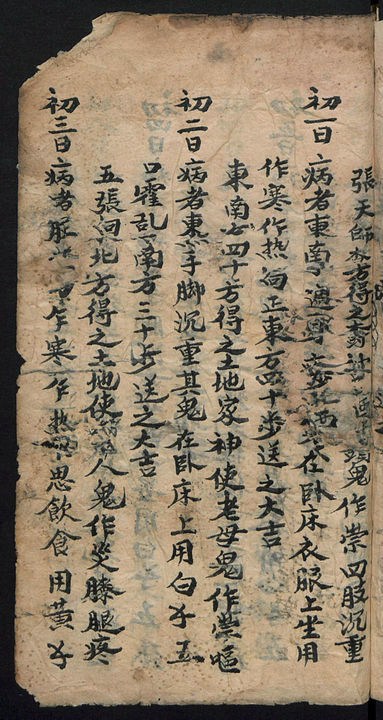 張天師 方得之 鬼作祟四肢沉重
初一日病者東南 在卧床衣服上坐用
作寒作热向正東方四十步送之大吉
東南 四十方得之土地家神使老母鬼作祟嘔
初二日病者東 手脚沉重其鬼在卧床上用白 五
口霍乱 南方三十步送之大吉
五張向北方得之土地使 人鬼作災膝腿疼
初三日病者 乍寒乍热 思飲食用黃